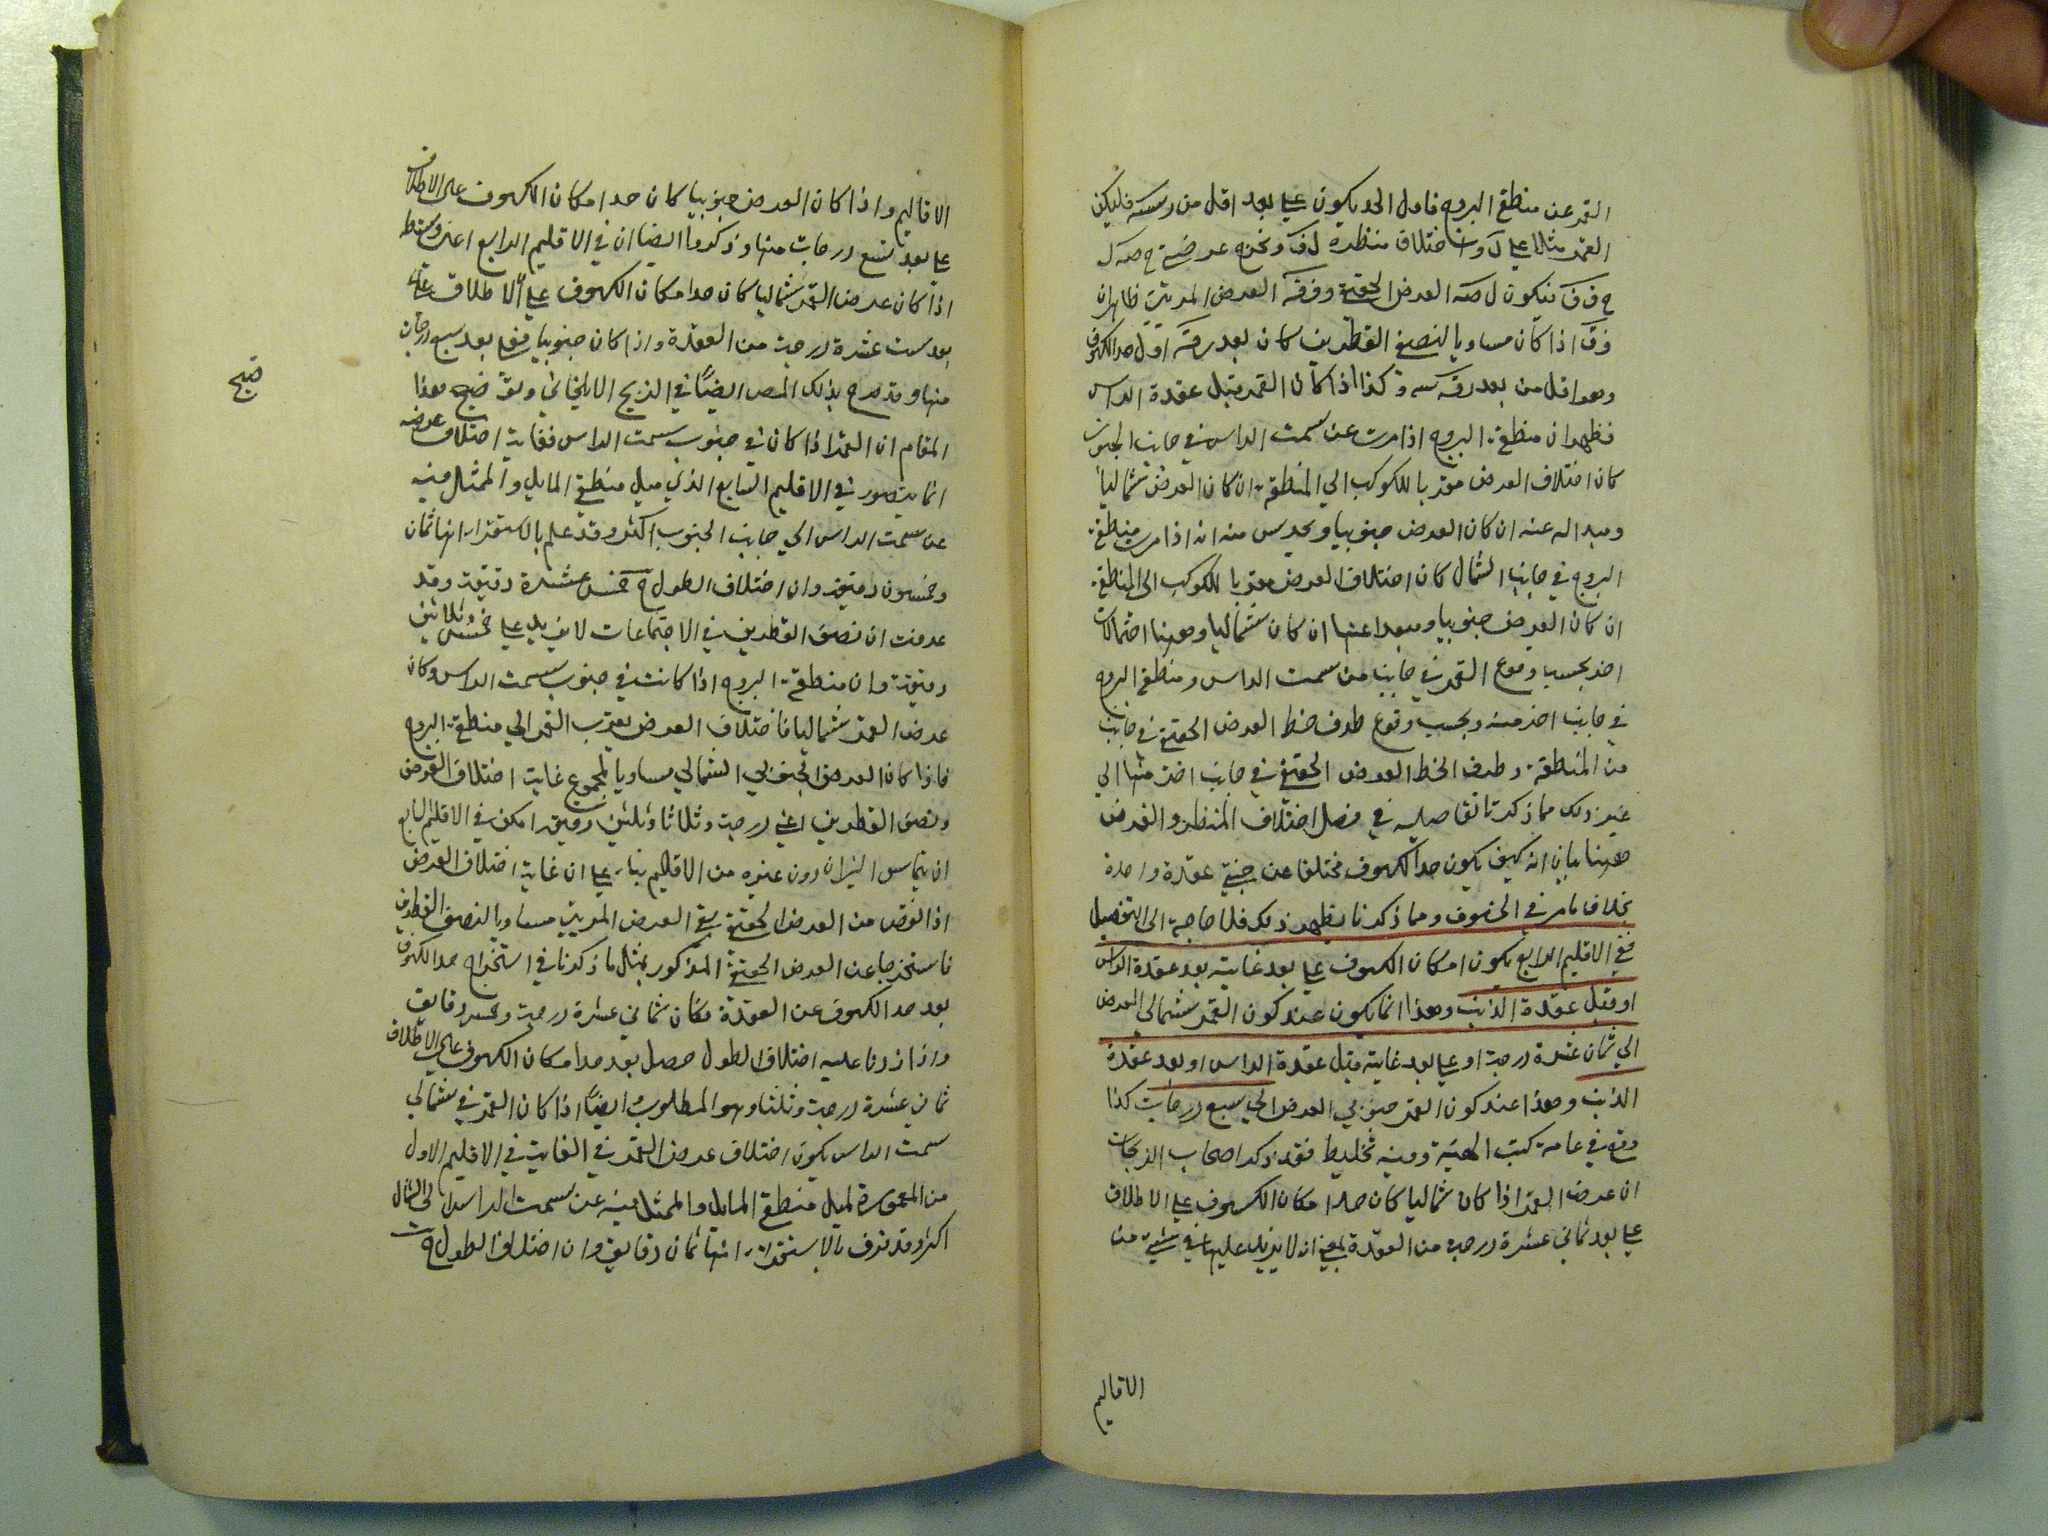 القمر عن منطقة البروج فاول الحد يكون على بعد اقل من فليكن
القمر مثلا على واختلاف منظره ونخرج عرضية
فيكون العرض الحقيقي و العرض المرئي فظاهر ان
اذا كان مساويا لنصف القطرين كان بعد اول حد الكسوف
وهو اقل من بعد وكذا اذا كان القمر قبل عقدة الراس
فظهر ان منطقة البروج اذا مرت عن سمت الراس في جانب الجنوب
كان اختلاف العرض مقربا للكوكب الى المنطقة ان كان العرض شماليا
ومبعدا له عنه ان كان العرض جنوبيا ويحدس منه انه اذا مرت منطقة
البروج في جانب الشمال كان اختلاف العرض مقربا للكوكب الى المنطقة
ان كان العرض جنوبيا ومبعدا عنها ان كان شماليا وههنا احتمالات
اخر بحسب وقوع القمر في جانب من سمت الراس ومنطقة البروج
في جانب اخر منه وبحسب وقوع طرف خط العرض الحقيقي في جانب
من المنطقة وطرف الخط العرض الحقيقي في جانب اخر منها الى
غير ذلك مما ذكرنا تفاصيله في فصل اختلاف المنظر والغرض
ههنا بيان انه كيف يكون حد الكسوف مختلفا عن جنبتي عقدة واحدة
بخلاف ما مر في الخسوف ومما ذكرنا يظهر ذلك فلا حاجة الى التفصيل
ففي الاقليم الرابع يكون امكان الكسوف على بعد غايته بعد عقدة الراس
او قبل عقدة الذنب وهذا انما يكون عند كون القمر شمالي العرض
الى ثمان عشرة درجة او على بعد غايته قبل عقدة الراس او بعد عقدة
الذنب وهذا عند كون القمر جنوبي العرض الى سبع درجات كذا
وقع في عامة كتب الهيئة وفيه تخليط فقد ذكر اصحاب الزيجات
ان عرض القمر اذا كان شماليا كان حد امكان الكسوف على الاطلاق
على بعد ثماني عشرة درجة من العقدة بمعنى انه لا يزيد عليها في شيء من
الاقاليم
الاقاليم واذا كان العرض جنوبيا كان حد امكان الكسوف على الاطلاق
على بعد تسع درجات منها وذكروا ايضا ان في الاقليم الرابع اعني وسطه
اذا كان عرض القمر شماليا كان حد امكان الكسوف على الاطلاق على
بعد ست عشرة درجة من العقدة واذا كان جنوبيا فعلى بعد سبع درجات
منها وقد صرح بذلك المص ايضا في الزيج الايلخاني وتوضيح هذا
المقام ان القمر اذا كان في جنوب سمت الراس فغاية اختلاف عرضه
انما يتصور في الاقليم السابع الذي ميل منطقتي المايل والممثل فيه
عن سمت الراس الى جانب الجنوب اكثر وقد علم بالاستقراء انها ثمان
وخمسون دقيقة وان اختلاف الطول ح خمس عشرة دقيقة وقد
عرفت ان نصف القطرين في الاجتماعات لا يزيد على خمس وثلاثين
دقيقة وان منطقة البروج اذا كانت في جنوب سمت الراس وكان
عرض القمر شماليا فاختلاف العرض يقرب القمر الى منطقة البروج
فاذا كان العرض الحقيقي الشمالي مساويا لمجموع غاية اختلاف العرض
ونصف القطرين اعني درجة وثلاثا وثلثين دقيقة امكن في الاقليم السابع
ان يتماس النيران دون غيره من الاقاليم بناء على ان غاية اختلاف العرض
اذا نقص من العرض الحقيقي بقي العرض المرئي مساويا لنصف القطرين
فاستخرجنا عن العرض الحقيقي المذكور بمثل ما ذكرنا في استخراج حد الكسوف
بعد حد الكسوف عن العقدة فكان ثماني عشرة درجة وعشر دقايق
واذا زدنا عليه اختلاف الطول حصل بعد حد امكان الكسوف على الاطلاق
ثماني عشرة درجة وثلثا وهو المطلوب وايضا اذا كان القمر في شمالي
سمت الراس يكون اختلاف عرض القمر في الغاية في الاقليم الاول
من المعمورة لميل منطقتي المايل والممثل فيه عن سمت الراس الى الشمال
اكثر وقد عرف بالاستقراء انها ثمان دقايق وان اختلاف الطول ح